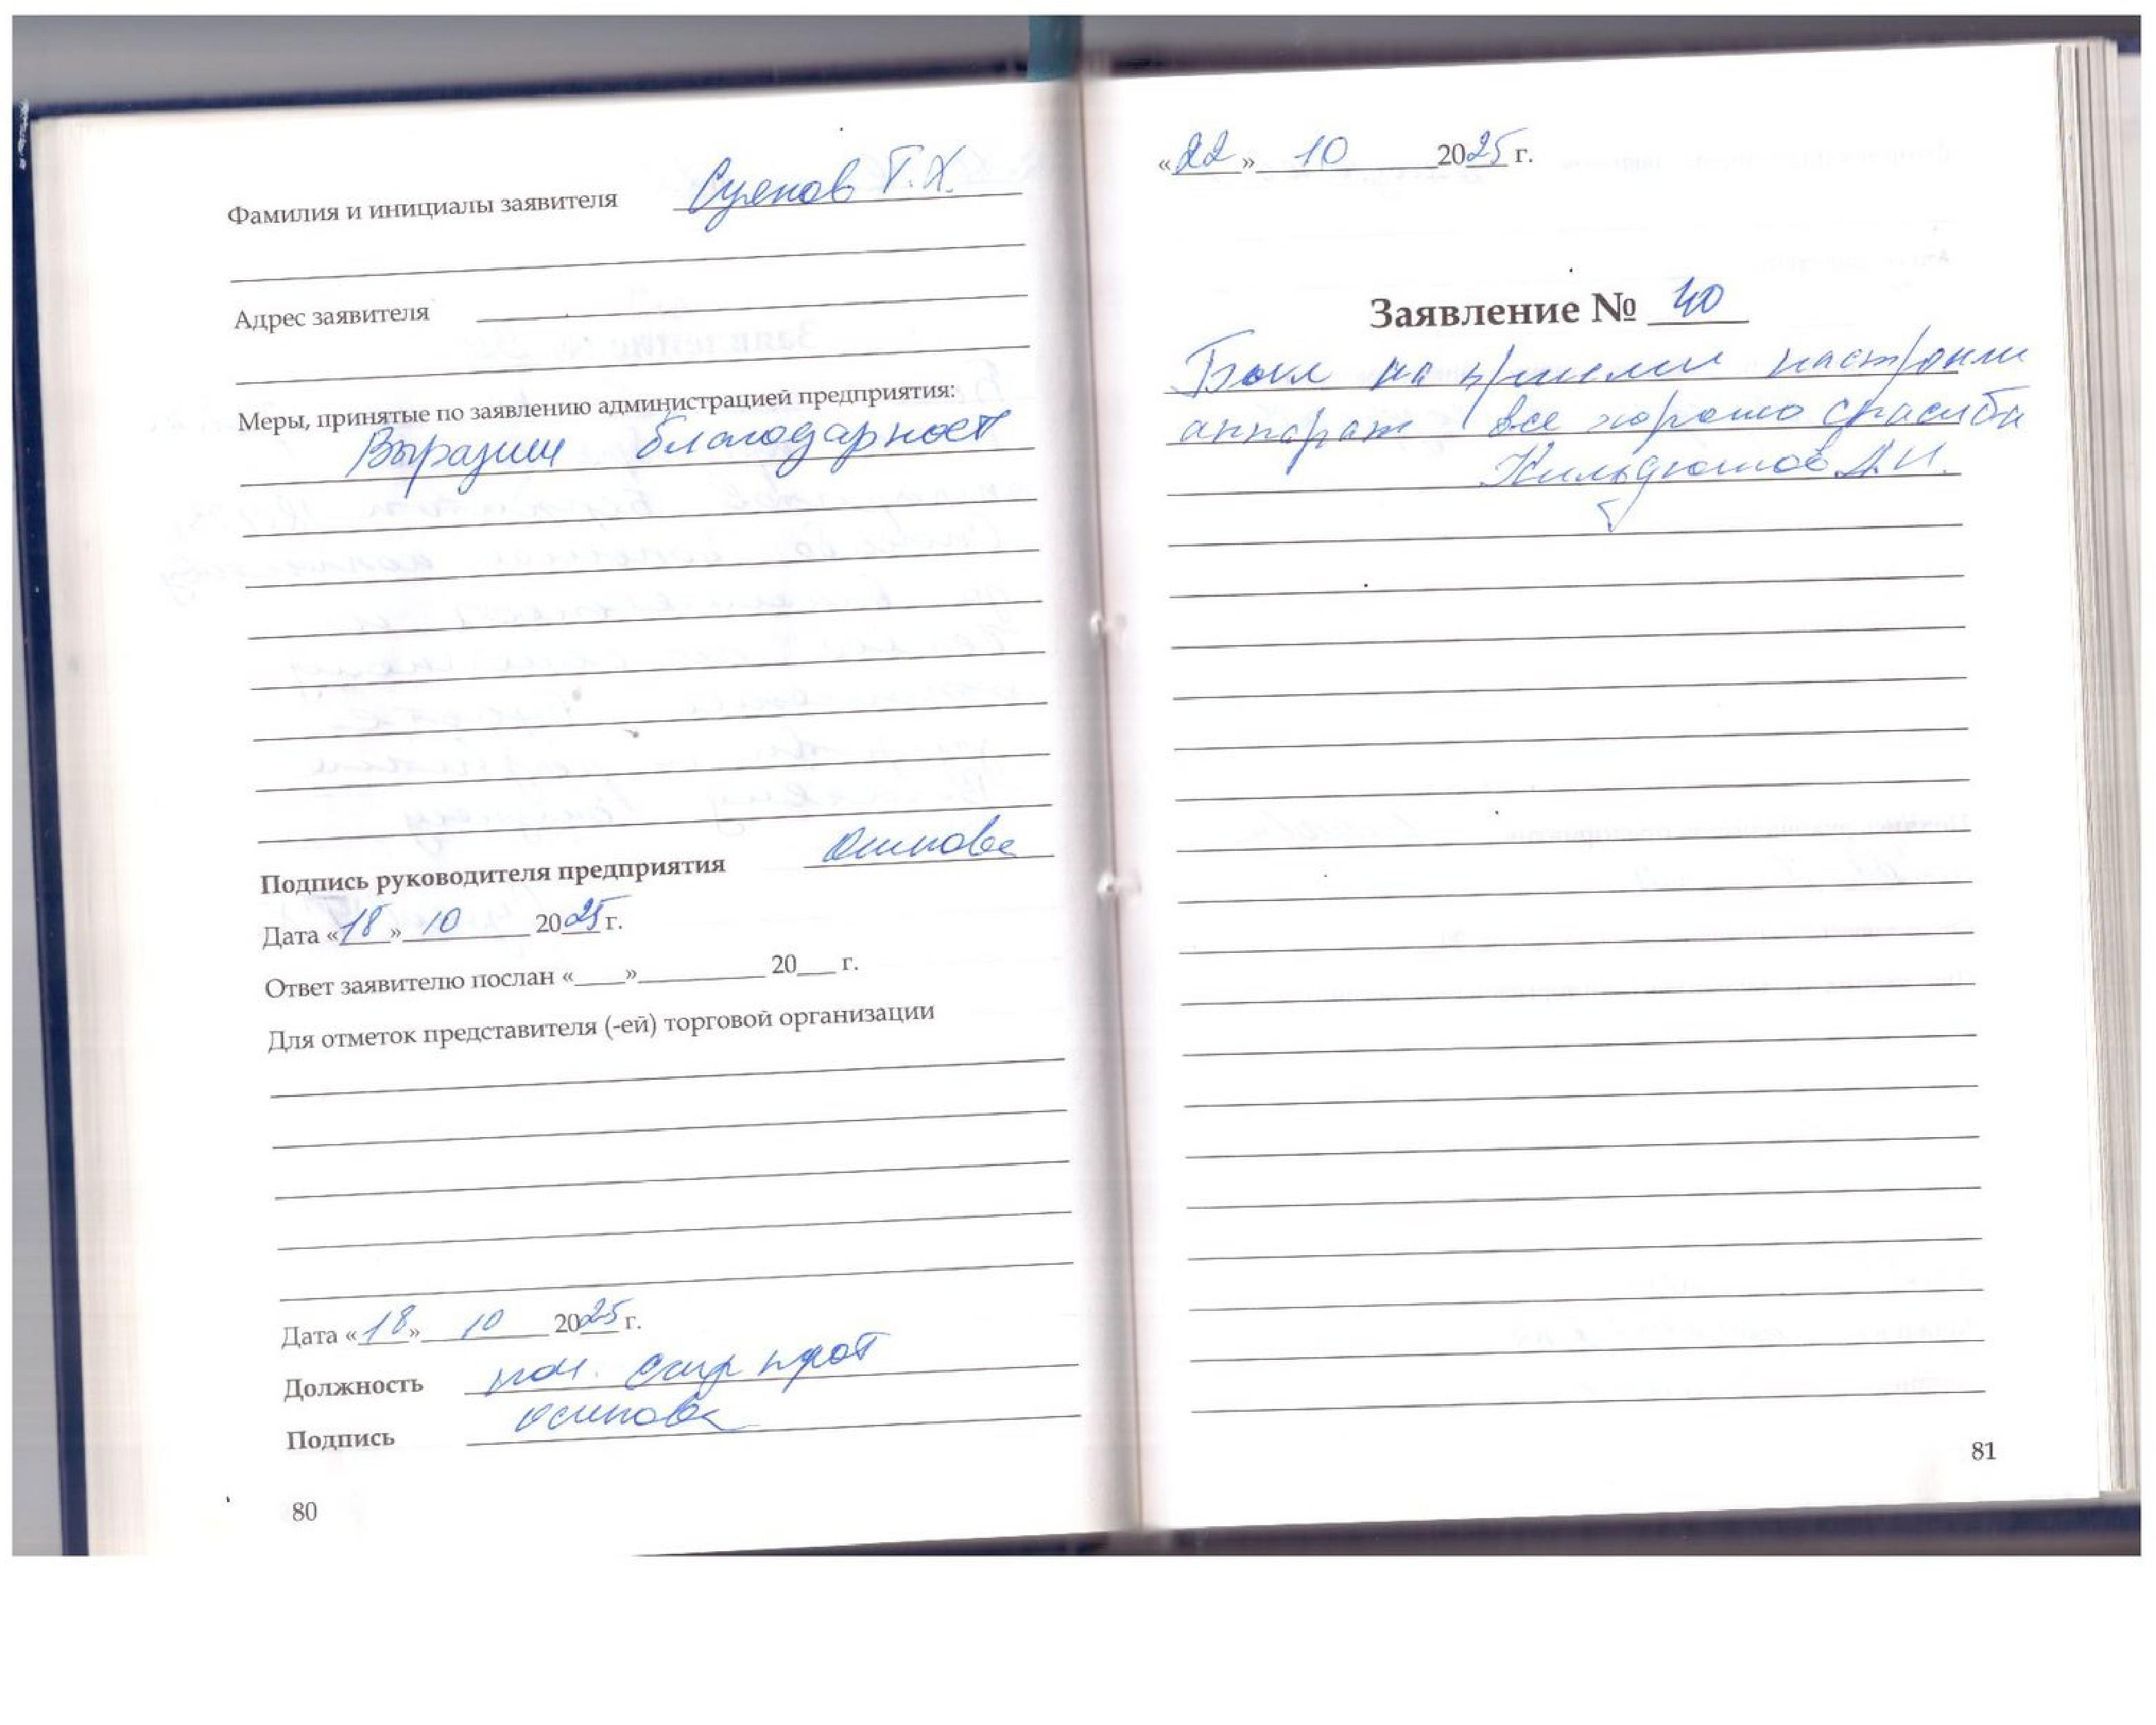 Фамилия и инициалы заявителя Суенов Т.Х.
Адрес заявителя
Меры, принятые по заявлению администрацией предприятия:
Выразили благодарност
Подпись руководителя предприятия Осипова
Дата «18» 10 2025 г.
Ответ заявителю послан «___»_________ 20___ г.
Для отметок представителя (-ей) торговой организации
Дата «18» 10 2025 г.
Должность
Подпись Осипова
80
«22» 10 2025 г.
Заявление № 40
Был на приеме настроили
аппарат все хорошо спасиба
Кильдюшов А.И.
81